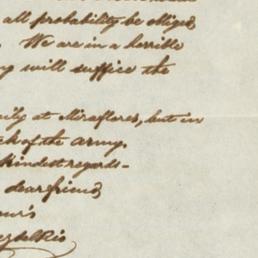 all probability be obliged
We are in a horrible
will suffice the
at Miraflores, but in
of the army.
kindest regards-
dear friend,